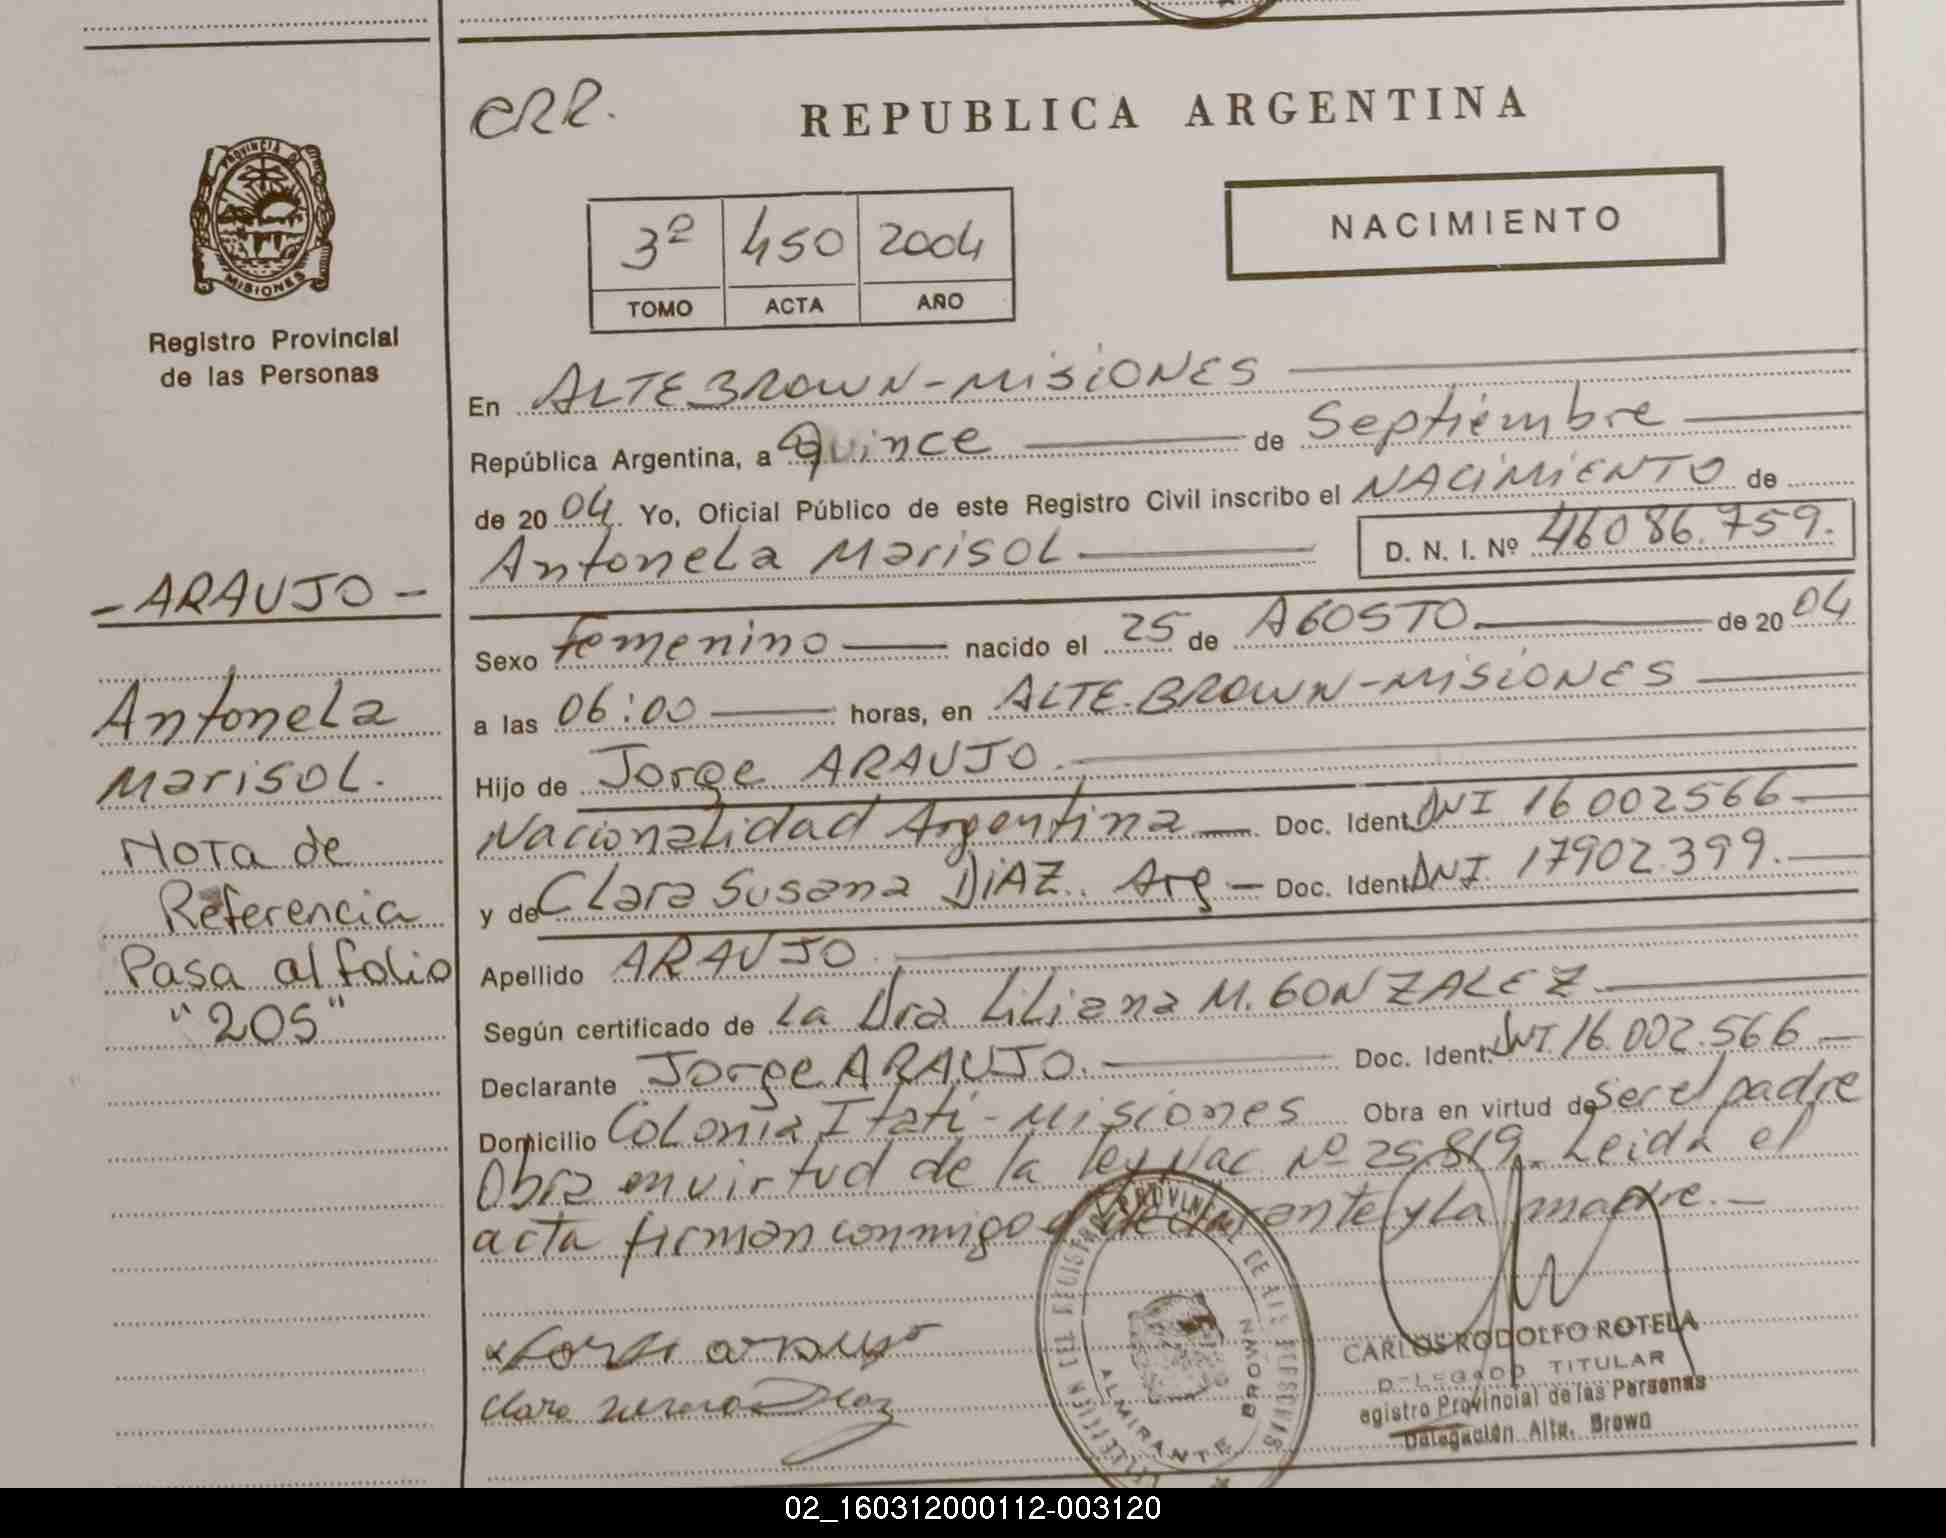 CRR.
REPUBLICA ARGENTINA
PROVINCIA DE
MISIONES
Registro Provincial
de las Personas
3º 450 2004
TOMO ACTA AÑO
NACIMIENTO
En ALTE BROWN-MISIONES
República Argentina, a Quince de Septiembre
de 2004 Yo, Oficial Público de este Registro Civil inscribo el NACIMIENTO de
Antonela Marisol D. N. I. Nº 46086.759.
Sexo Femenino nacido el 25 de AGOSTO. de 2004
a las 06:00 horas, en ALTE.BROWN-MISIONES
Hijo de Jorge ARAUJO.
Nacionalidad Argentina Doc. Ident. DNI 16002566
y de Clara Susana DIAZ. Arg Doc. Ident. DNI. 17902.399.
Apellido ARAUJO.
Según certificado de La Dra Liliana M. GONZALEZ
Declarante Jorge ARAUJO. Doc. Ident. DNI. 16.002.566
Domicilio Colonia Itatí-Misiones Obra en virtud de ser el padre
Obra en virtud de la ley Nac Nº 25.819. Leida el
acta firman conmigo declarante y La madre.
-ARAUJO-
Antonela
Marisol.
Nota de
Referencia
Pasa al folio
"205"
Clara Susana Diaz
ALMIRANTE BROWN
CARLOS RODOLFO ROTELA
DELEGADO TITULAR
egistro Provincial de las Personas
Delegación Alte. Brown
02_160312000112-003120